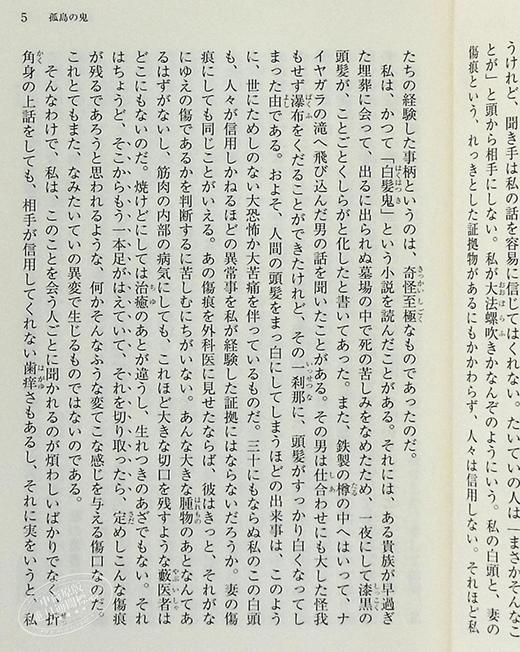 うけれど、聞き手は私の話を容易に信じてはくれない。たいていの人は「まさかそんなこ
とが」と頭から相手にしない。私が大法螺吹きかなんぞのようにいう。私の白頭と、妻の
傷痕という、れっきとした証拠物があるにもかかわらず、人々は信用しない。それほど私
5 孤島の鬼
たちの経験した事柄というのは、奇怪至極なものであったのだ。
私は、かつて「白髪鬼」という小説を読んだことがある。それには、ある貴族が早過ぎ
た埋葬に会って、出るに出られぬ墓場の中で死の苦しみをなめたため、一夜にして漆黒の
頭髪が、ことごとくしらがと化したと書いてあった。また、鉄製の樽の中へはいって、ナ
イヤガラの滝へ飛び込んだ男の話を聞いたことがある。その男は仕合わせにも大した怪我
もせず瀑布をくだることができたけれど、その一刹那に、頭髪がすっかり白くなってし
まった由である。およそ、人間の頭髪をまっ白にしてしまうほどの出来事は、このよう
に、世にためしのない大恐怖か大苦痛を伴っているものだ。三十にもならぬ私のこの白頭
も、人々が信用しかねるほどの異常事を私が経験した証拠にはならないだろうか。妻の傷
痕にしても同じことがいえる。あの傷痕を外科医に見せたならば、彼はきっと、それがな
にゆえの傷であるかを判断するに苦しむにちがいない。あんな大きな腫物のあとなんてあ
るはずがないし、筋肉の内部の病気にしても、これほど大きな切口を残すような藪医者は
どこにもないのだ。焼けどにしては治癒のあとが違うし、生れつきのあざでもない。それ
はちょうど、そこからもう一本足がはえていて、それを切り取ったら、定めしこんな傷痕
が残るであろうと思われるような、何かそんなふうな変てこな感じを与える傷口なのだ。
これとてもまた、なみたいていの異変で生じるものではないのである。
そんなわけで、私は、このことを会う人ごとに聞かれるのが煩わしいばかりでなく、折
角身の上話をしても、相手が信用してくれない歯痒さもあるし、それに実をいうと、私